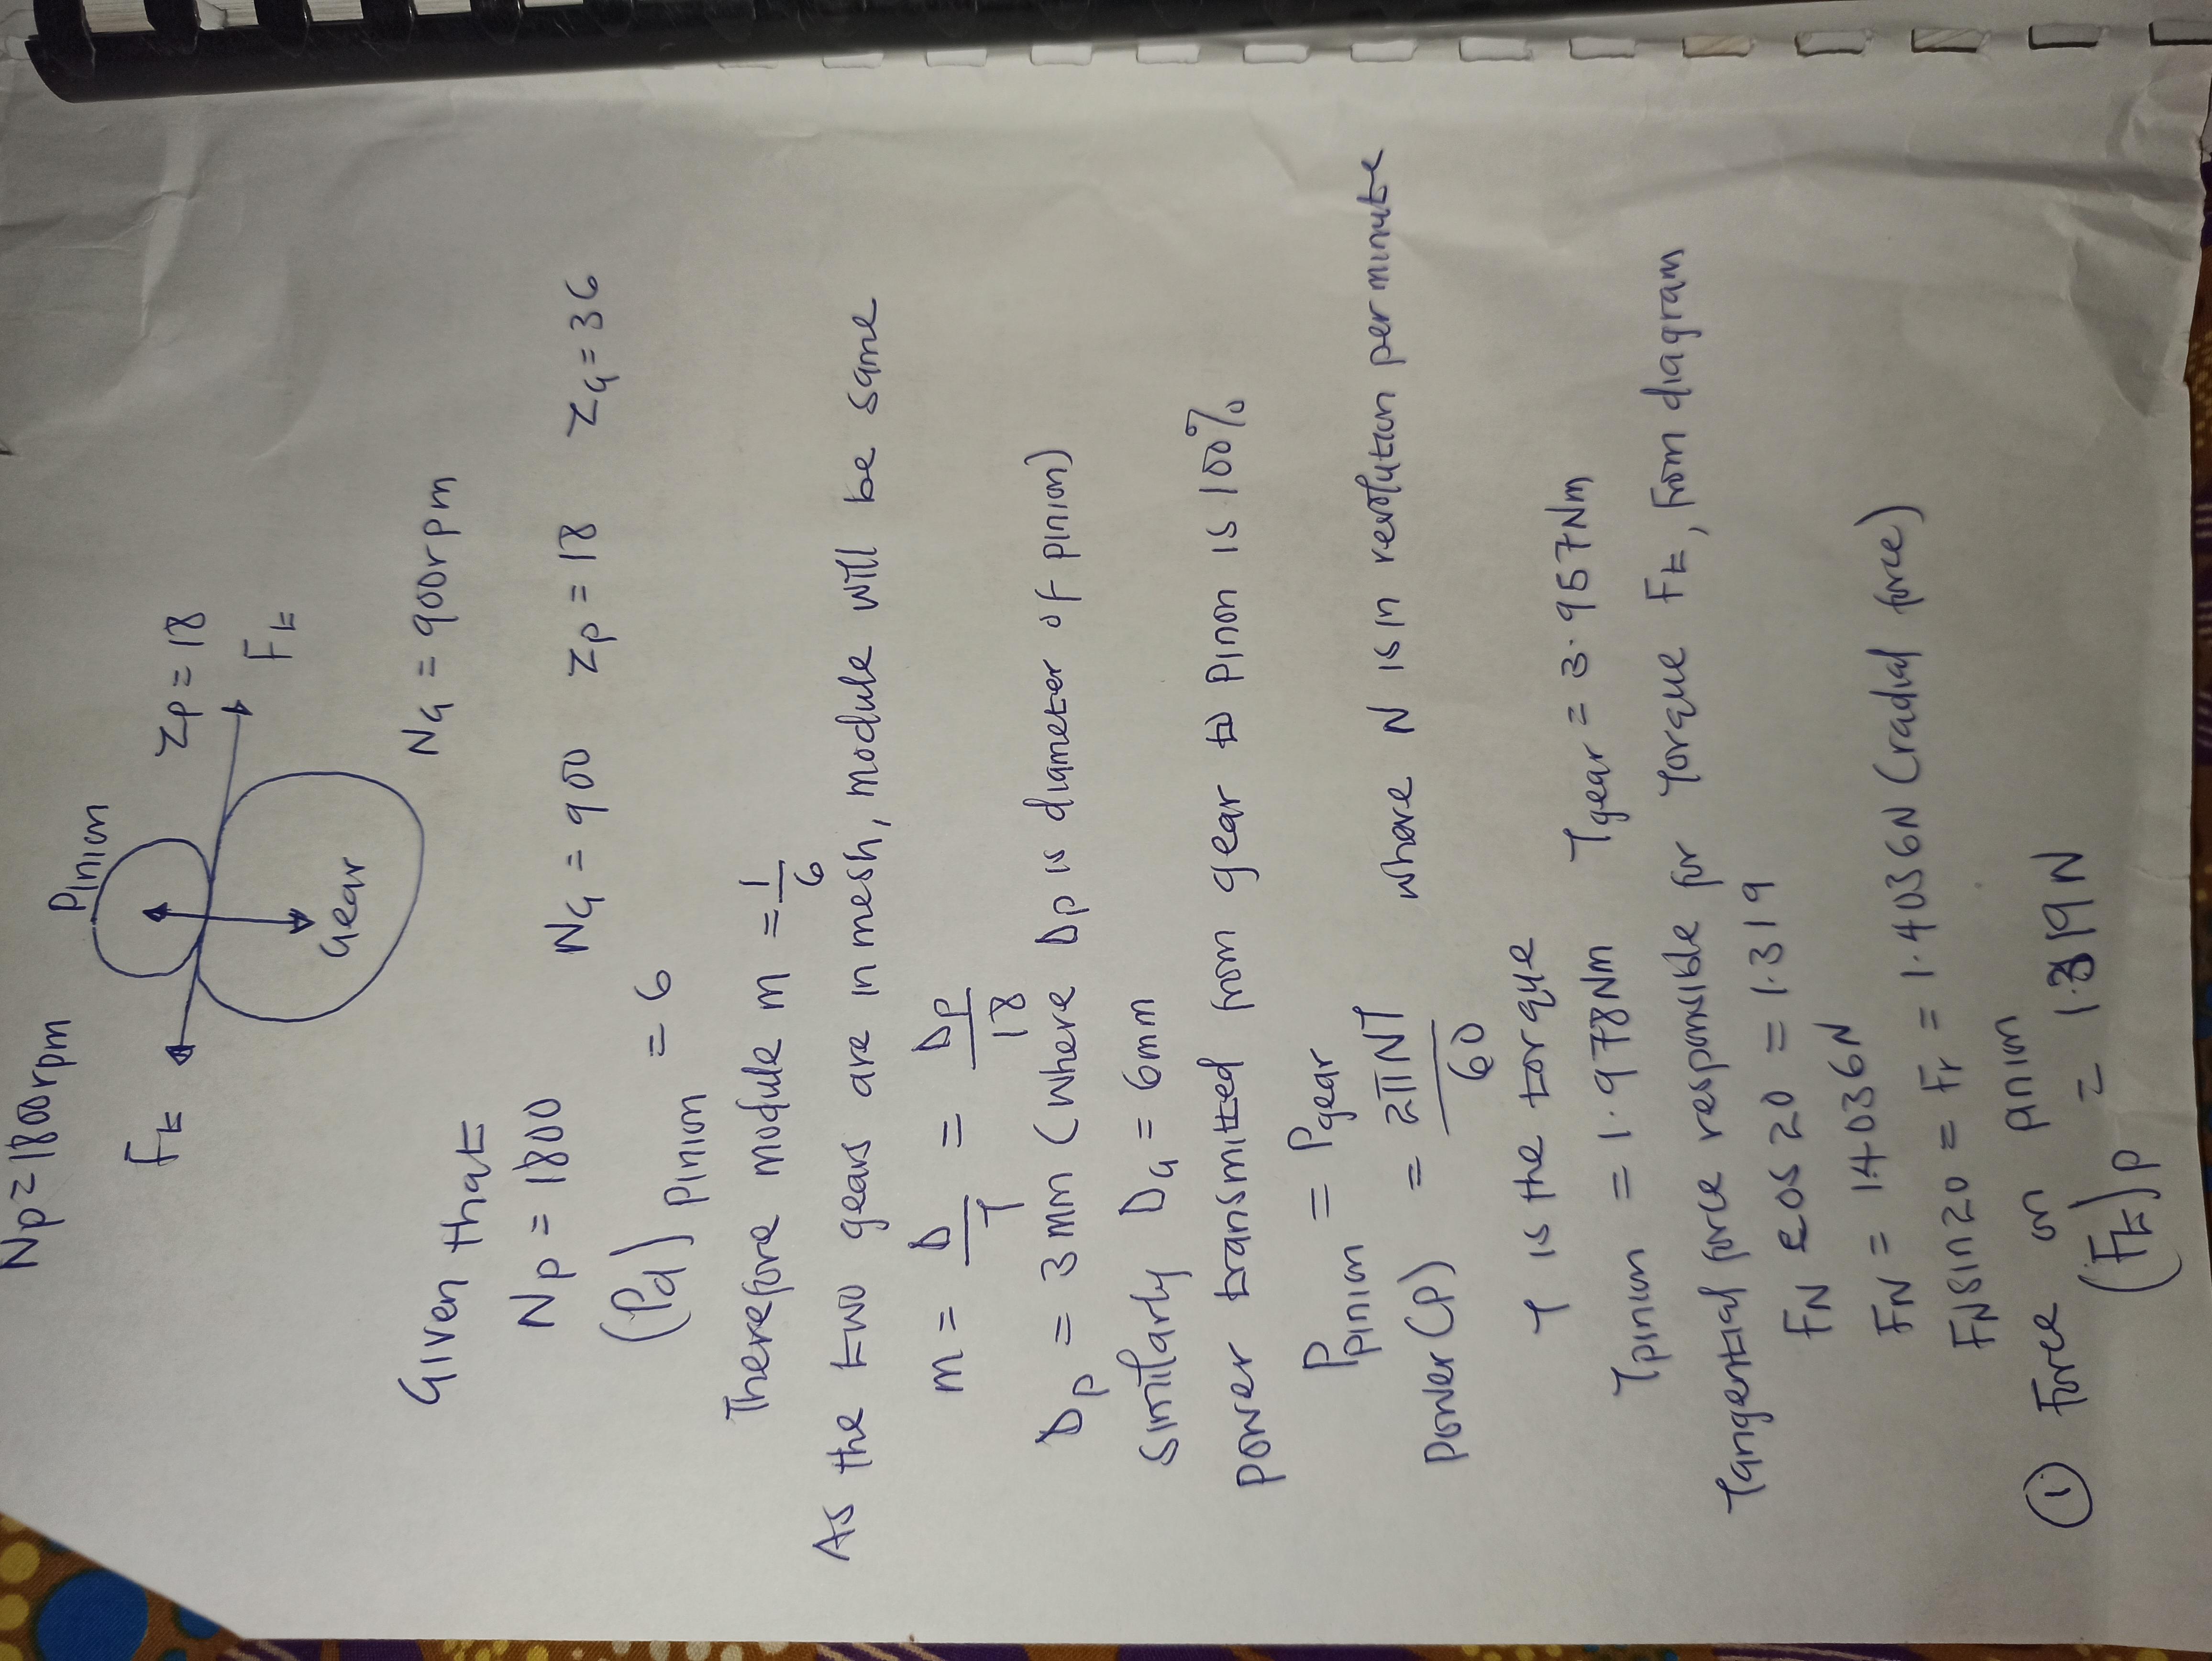 Np = 1800rpm
Pinion
Zp = 18
Ft
Ft
Gear
NG = 900rpm
Given that
Np = 1800 NG = 900 Zp = 18 ZG = 36
(Pd) pinion = 6
Therefore module m = 1/6
As the two gears are in mesh, module will be same
m = D/T = Dp/18
Dp = 3mm (where Dp is diameter of pinion)
Similarly DG = 6mm
Power transmitted from gear to pinon is 100%
Ppinion = Pgear
Power (P) = 2πNT/60 where N is in revolution per minute
T is the torque
Tpinion = 1.978Nm Tgear = 3.957Nm
Tangential force responsible for Torque Ft, from diagram
FN cos 20 = 1.319
FN = 1.4036N
FN sin 20 = Fr = 1.4036N (radial force)
① Force on pinion
(Ft)p = 1.319N